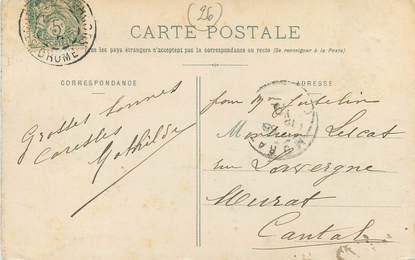 (26)
CARTE POSTALE
pays étrangers n'acceptent pas la correspondance au recto (Se renseigner à la Poste)
CORRESPONDANCE
ADRESSE
Grosses bonnes
Caresses
Mathilde
pour Mr
Monsieur Lescat
rue Lavergne
Murat
Cantal